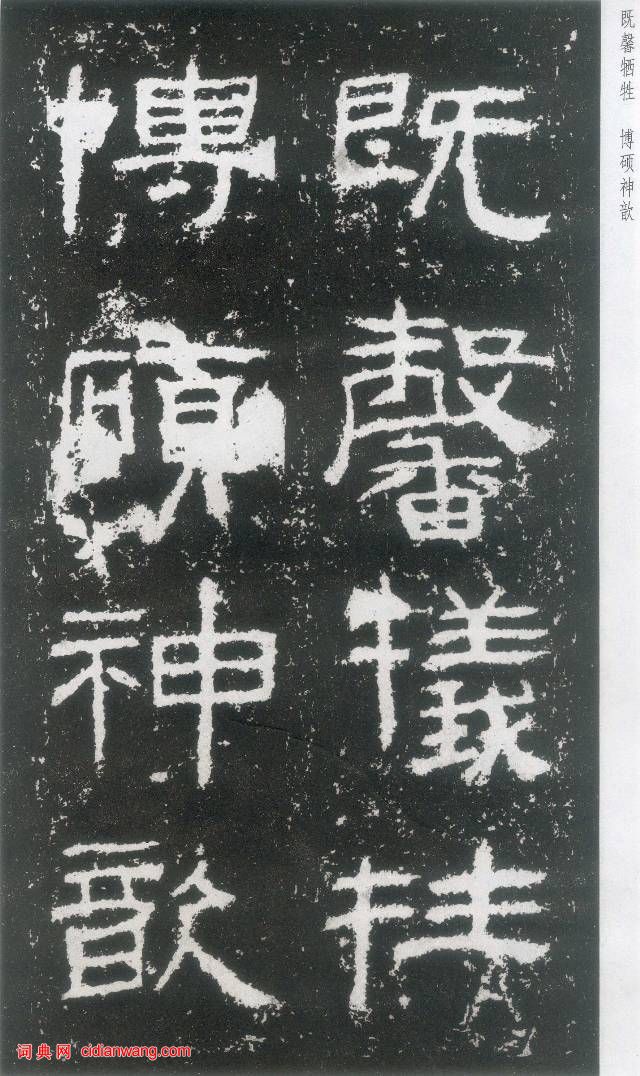 既馨牺牲 博硕神歆
既馨犧牲
博碩神歆
词典网 cidianwang.com